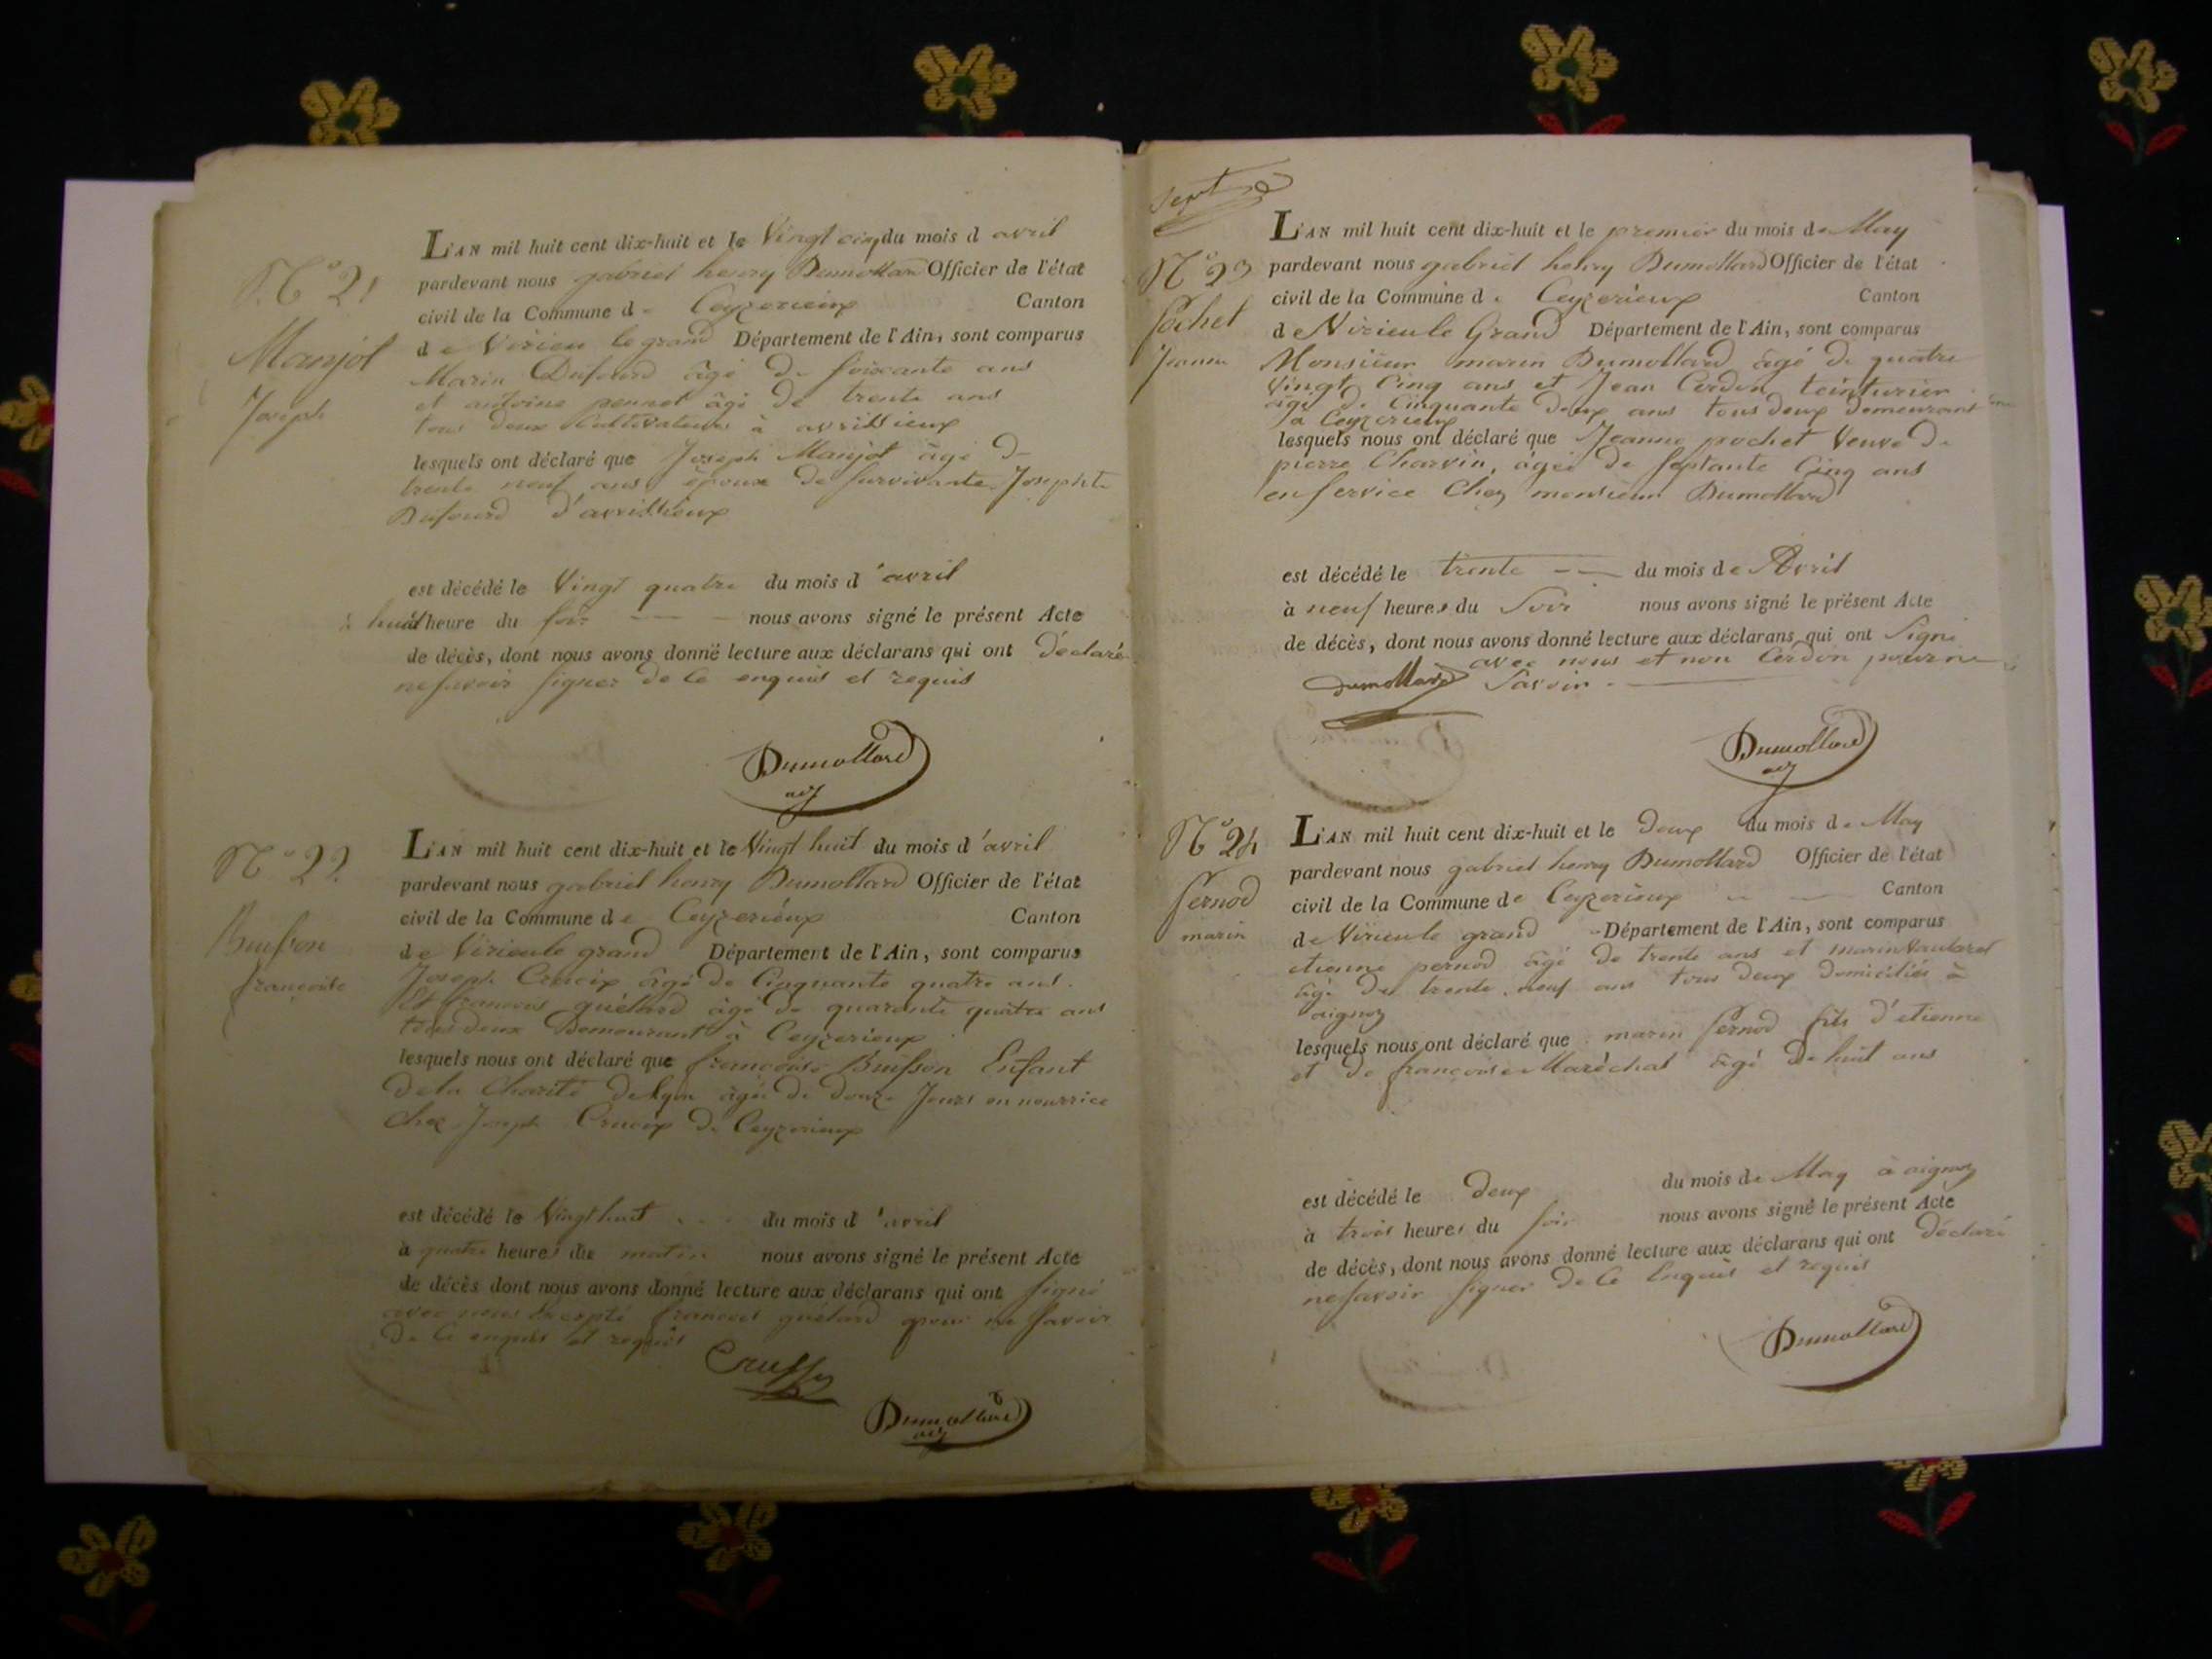 N° 21
Manjot
Joseph
L'AN mil huit cent dix-huit et le Vingt cinq du mois d avril
pardevant nous gabriel henry Dumollard Officier de l'état
civil de la Commune de Ceyzerieux Canton
de Virieu le grand Département de l'Ain, sont comparus
Marin Dufourd âgé de soixante ans
et antoine pernet âgé de trente ans
tous deux Cultivateurs à avrissieux
lesquels ont déclaré que Joseph Manjot âgé de
trente neuf ans époux de survivante Josephte
Dufourd d'avrissieux
est décédé le Vingt quatre du mois d'avril
à huit heure du soir nous avons signé le présent Acte
de décès, dont nous avons donné lecture aux déclarans qui ont déclaré
ne savoir signer de ce enquis et requis
Dumollard
adj
N° 22
Buisson
françoise
L'AN mil huit cent dix-huit et le Vingt huit du mois d'avril
pardevant nous gabriel henry Dumollard Officier de l'état
civil de la Commune de Ceyzerieux Canton
de Virieu le grand Département de l'Ain, sont comparus
Joseph Crueix âgé de Cinquante quatre ans.
Et francois guélard âgé de quarante quatre ans
tous deux Demeurant à Ceyzerieux
lesquels nous ont déclaré que francoise Buisson Enfant
de la Charité de Lyon âgée de douze Jours en nourrice
chez Joseph Crueix de Ceyzerieux
est décédé le Vingt huit du mois d'avril
à quatre heures du matin nous avons signé le présent Acte
de décès dont nous avons donné lecture aux déclarans qui ont signé
avec nous Excepté francois guélard pour ne savoir
de ce enquis et requis
Dumollard
adj
Sept
N° 23
Pochet
Jeanne
L'AN mil huit cent dix-huit et le premier du mois de May
pardevant nous gabriel henry Dumollard Officier de l'état
civil de la Commune de Ceyzerieux Canton
de Virieu le Grand Département de l'Ain, sont comparus
Monsieur marin Dumollard âgé de quatre
Vingt Cinq ans et Jean Cerdon teinturier
âgé de Cinquante deux ans tous deux demeurant
à Ceyzerieux
lesquels nous ont déclaré que Jeanne pochet Veuve de
pierre Charvin, âgée de septante Cinq ans
en service Chez monsieur Dumollard
est décédé le trente du mois de Avril
à neuf heures du Soir nous avons signé le présent Acte
de décès, dont nous avons donné lecture aux déclarans qui ont Signé
avec nous et non Cerdon pour ne
Savoir
Dumollard
Dumollard
adj
N° 24
Pernod
marin
L'AN mil huit cent dix-huit et le Deux du mois de May
pardevant nous gabriel henry Dumollard Officier de l'état
civil de la Commune de Ceyzerieux Canton
de Virieu le grand Département de l'Ain, sont comparus
etienne pernod âgé de trente ans et marin
âgé de trente neuf ans tous deux domiciliés à
aignoz
lesquels nous ont déclaré que marin Pernod fils d'etienne
et de françoise Maréchal âgé de huit ans
est décédé le deux du mois de May à aignoz
à trois heures du soir nous avons signé le présent Acte
de décès, dont nous avons donné lecture aux déclarans qui ont déclaré
ne savoir signer de ce Enquis et requis
Dumollard